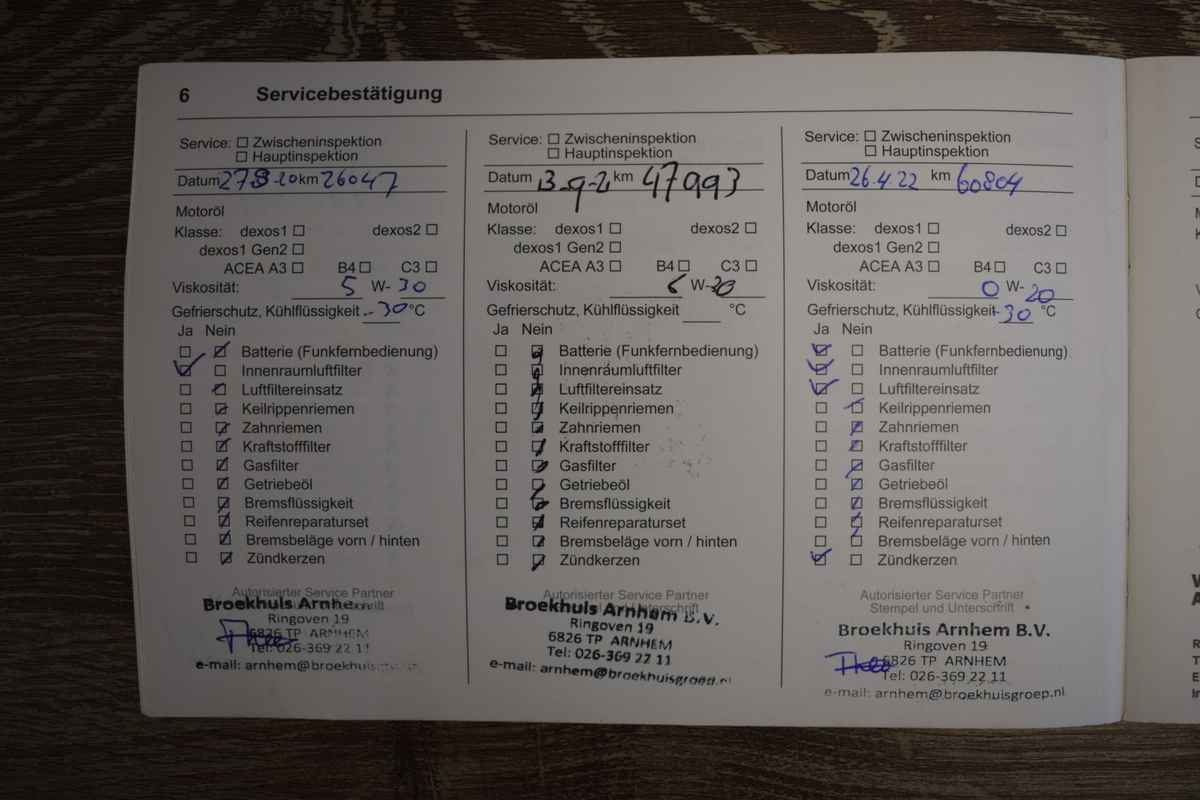 6 Servicebestätigung
Service: ☐ Zwischeninspektion
☐ Hauptinspektion
Datum km 26047
Motoröl
Klasse: dexos1 ☐ dexos2 ☐
dexos1 Gen2 ☐
ACEA A3 ☐ B4 ☐ C3 ☐
Viskosität: 5 W- 30
Gefrierschutz, Kühlflüssigkeit - 30 °C
Ja Nein
Batterie (Funkfernbedienung)
Innenraumluftfilter
Luftfiltereinsatz
Keilrippenriemen
Zahnriemen
Kraftstofffilter
Gasfilter
Getriebeöl
Bremsflüssigkeit
Reifenreparaturset
Bremsbeläge vorn / hinten
Zündkerzen
Autorisierter Service Partner
Broekhuis
Ringoven 19
6826 TP ARNHEM
Tel: 026-369 22 11
e-mail:
Service: ☐ Zwischeninspektion
☐ Hauptinspektion
Datum 13-9-21 km 47993
Motoröl
Klasse: dexos1 ☐ dexos2 ☐
dexos1 Gen2 ☐
ACEA A3 ☐ B4 ☐ C3 ☐
Viskosität: W-
Gefrierschutz, Kühlflüssigkeit °C
Ja Nein
Batterie (Funkfernbedienung)
Innenraumluftfilter
Luftfiltereinsatz
Keilrippenriemen
Zahnriemen
Kraftstofffilter
Gasfilter
Getriebeöl
Bremsflüssigkeit
Reifenreparaturset
Bremsbeläge vorn / hinten
Zündkerzen
Autorisierter Service Partner
Broekhuis Arnhem B.V.
Ringoven 19
6826 TP ARNHEM
Tel: 026-369 22 11
e-mail: arnhem@broekhuisgroep.nl
Service: ☐ Zwischeninspektion
☐ Hauptinspektion
Datum 26.4.22 km 60804
Motoröl
Klasse: dexos1 ☐ dexos2 ☐
dexos1 Gen2 ☐
ACEA A3 ☐ B4 ☐ C3 ☐
Viskosität: 0 W- 20
Gefrierschutz, Kühlflüssigkeit -30 °C
Ja Nein
Batterie (Funkfernbedienung)
Innenraumluftfilter
Luftfiltereinsatz
Keilrippenriemen
Zahnriemen
Kraftstofffilter
Gasfilter
Getriebeöl
Bremsflüssigkeit
Reifenreparaturset
Bremsbeläge vorn / hinten
Zündkerzen
Autorisierter Service Partner
Stempel und Unterschrift
Broekhuis Arnhem B.V.
Ringoven 19
6826 TP ARNHEM
Theo
Tel: 026-369 22 11
e-mail: arnhem@broekhuisgroep.nl